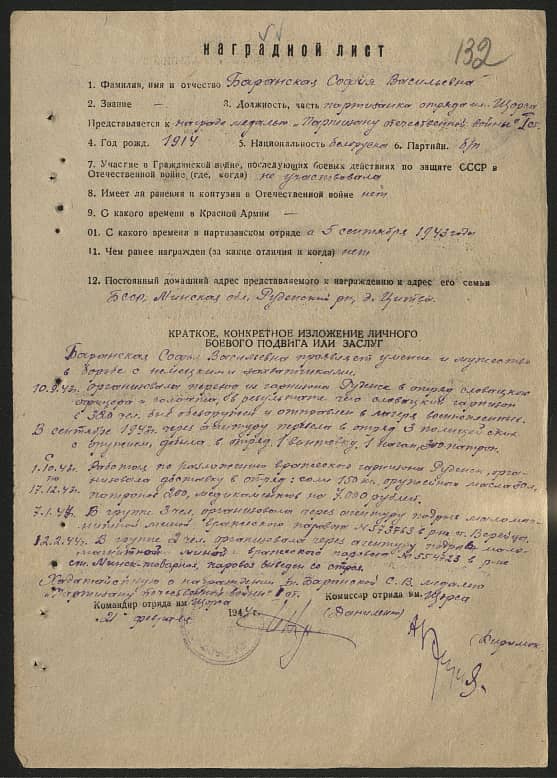 НАГРАДНОЙ ЛИСТ
132
1. Фамилия, имя и отчество Баранская София Васильевна
2. Звание — 3. Должность, часть партизанка отряда им. Щорса
Представляется к награде медалью "Партизану Отечественной войны" I ст.
4. Год рожд. 1914 5. Национальность белоруска 6. Партийн. б/п
7. Участие в Гражданской войне, последующих боевых действиях по защите СССР в
Отечественной войне (где, когда) не участвовала
8. Имеет ли ранения и контузии в Отечественной войне нет
9. С какого времени в Красной Армии —
01. С какого времени в партизанском отряде с 5 сентября 1943 года
11. Чем ранее награжден (за какие отличия и когда) нет
12. Постоянный домашний адрес представляемого к награждению и адрес его семьи
БССР, Минская обл. Руденский рн,
КРАТКОЕ, КОНКРЕТНОЕ ИЗЛОЖЕНИЕ ЛИЧНОГО
БОЕВОГО ПОДВИГА ИЛИ ЗАСЛУГ
Баранская София Васильевна проявляет умение и мужество
в борьбе с немецкими захватчиками.
организовала переход из гарнизона Руденск в отряд словацких
офицера и солдата, в результате чего словацкий гарнизон
в чел. был обезоружен и отправлен в лагеря военнопленных.
В сентябре через агентуру привела в отряд 3 полицейских
с оружием, добыла в отряд 1 винтовку, 1 наган, 300 патрон.
Работая по разложению вражеского гарнизона Руденск, орга-
низовала доставку в отряд: соли 150 кг, оружейного масла
патронов 200, медикаментов на 7.000 рублей.
7.1.44. В группе 3 чел. организовала через агентуру подрыв мало маг-
нитной миной вражеского паровоза
12.2.44. В группе 2 чел. организовала через агентуру подрыв мало
магнитной миной вражеского паровоза № 554723 в рне
ст. Минск-товарная, паровоз выведен из строя.
Ходатайствую о награждении т. Баранской С. В. медалью
"Партизану Отечественной войны" I ст.
Командир отряда им. Щорса Комиссар отряда им. Щорса
"21" февраля 1944 г.